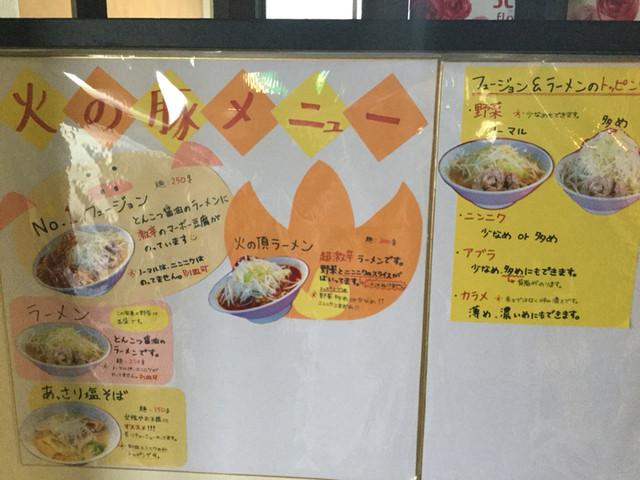 火の豚メニュー
No.1 フュージョン
麺:250g
とんこつ醤油のラーメンに
激辛のマーボー豆腐が
のっています
ノーマルは、ニンニクは
のってません。別皿可
火の頂ラーメン
超激辛ラーメンです。
野菜とニンニクのスライスが
はいってます。
ラーメン
とんこつ醤油の
ラーメンです。
麺:250g
あっさり塩そば
麺:150g
女性やお子様に
オススメ!!!
フュージョン&ラーメンのトッピン
・野菜
少なめもできます。
ノーマル
多め
・ニンニク
少なめ or 多め
・アブラ
少なめ、多めにもできます。
背脂がのります。
・カラメ
薄め、濃いめにもできます。